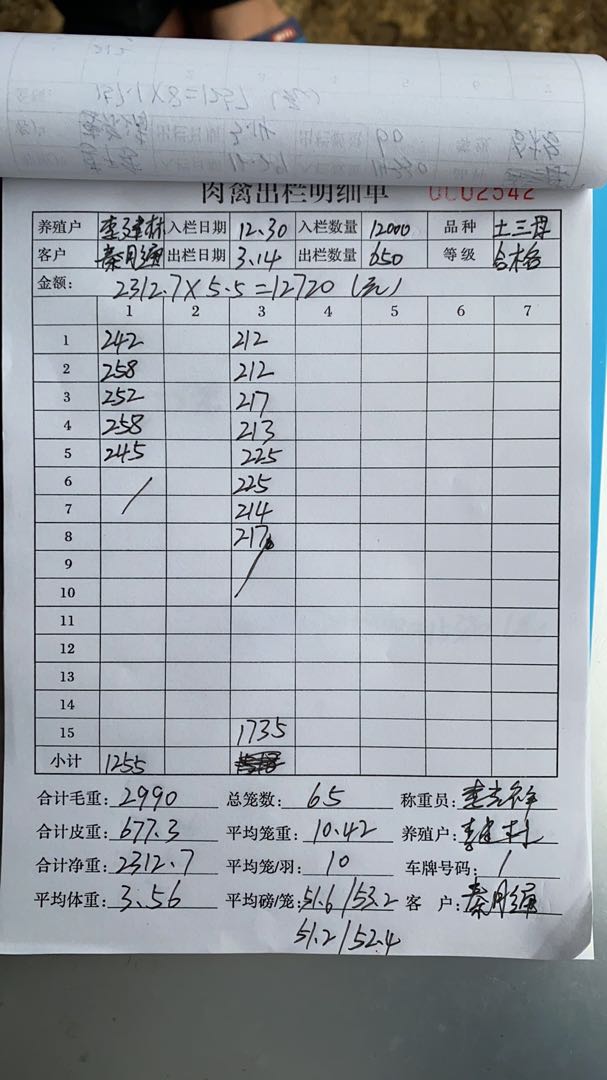 肉禽出栏明细单 0002542
养殖户 入栏日期 12.30 入栏数量 12000 品种 土三母
客户 秦月缅 出栏日期 3.14 出栏数量 650 等级 合格
金额: 2312.7×5.5=12720(元)
1 2 3 4 5 6 7
1 242 212
2 258 212
3 252 217
4 258 213
5 245 225
6 225
7 214
8 217
9
10
11
12
13
14
15 1735
小计 1255
合计毛重: 2990 总笼数: 65 称重员:
合计皮重: 677.3 平均笼重: 10.42 养殖户:
合计净重: 2312.7 平均笼/羽: 10 车牌号码: /
平均体重: 3.56 平均磅/笼: 51.6/53.2 客 户:
51.2/52.4